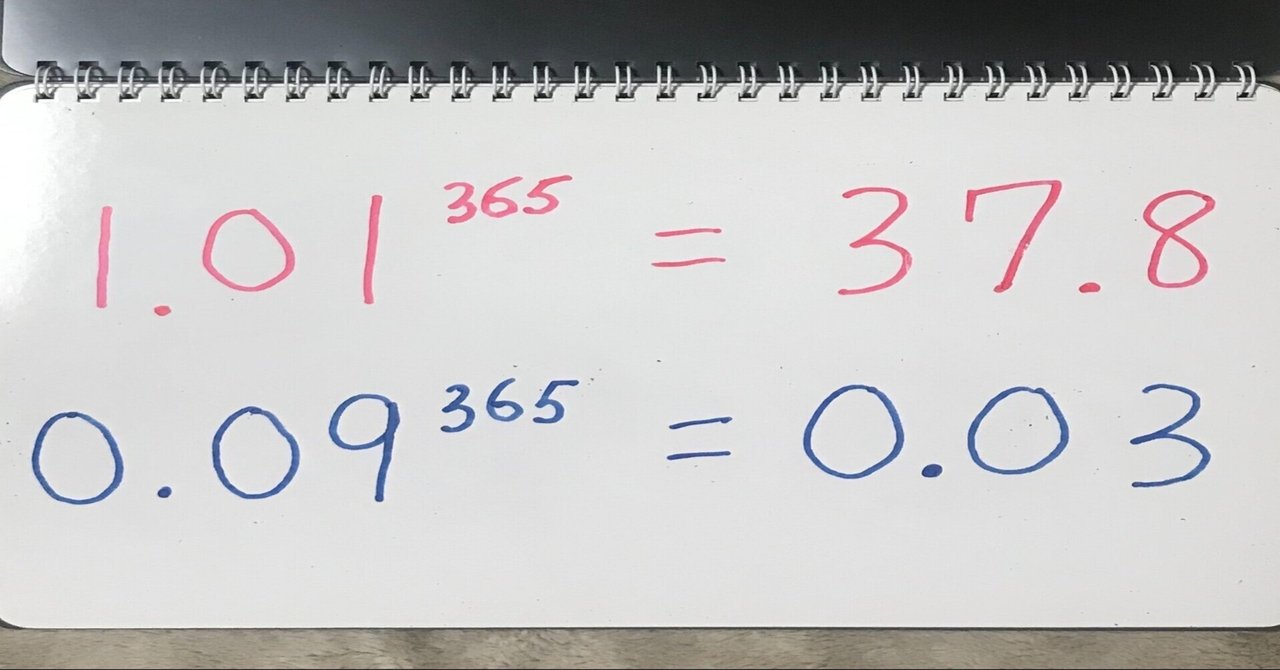 1.01³⁶⁵ = 37.8
0.09³⁶⁵ = 0.03